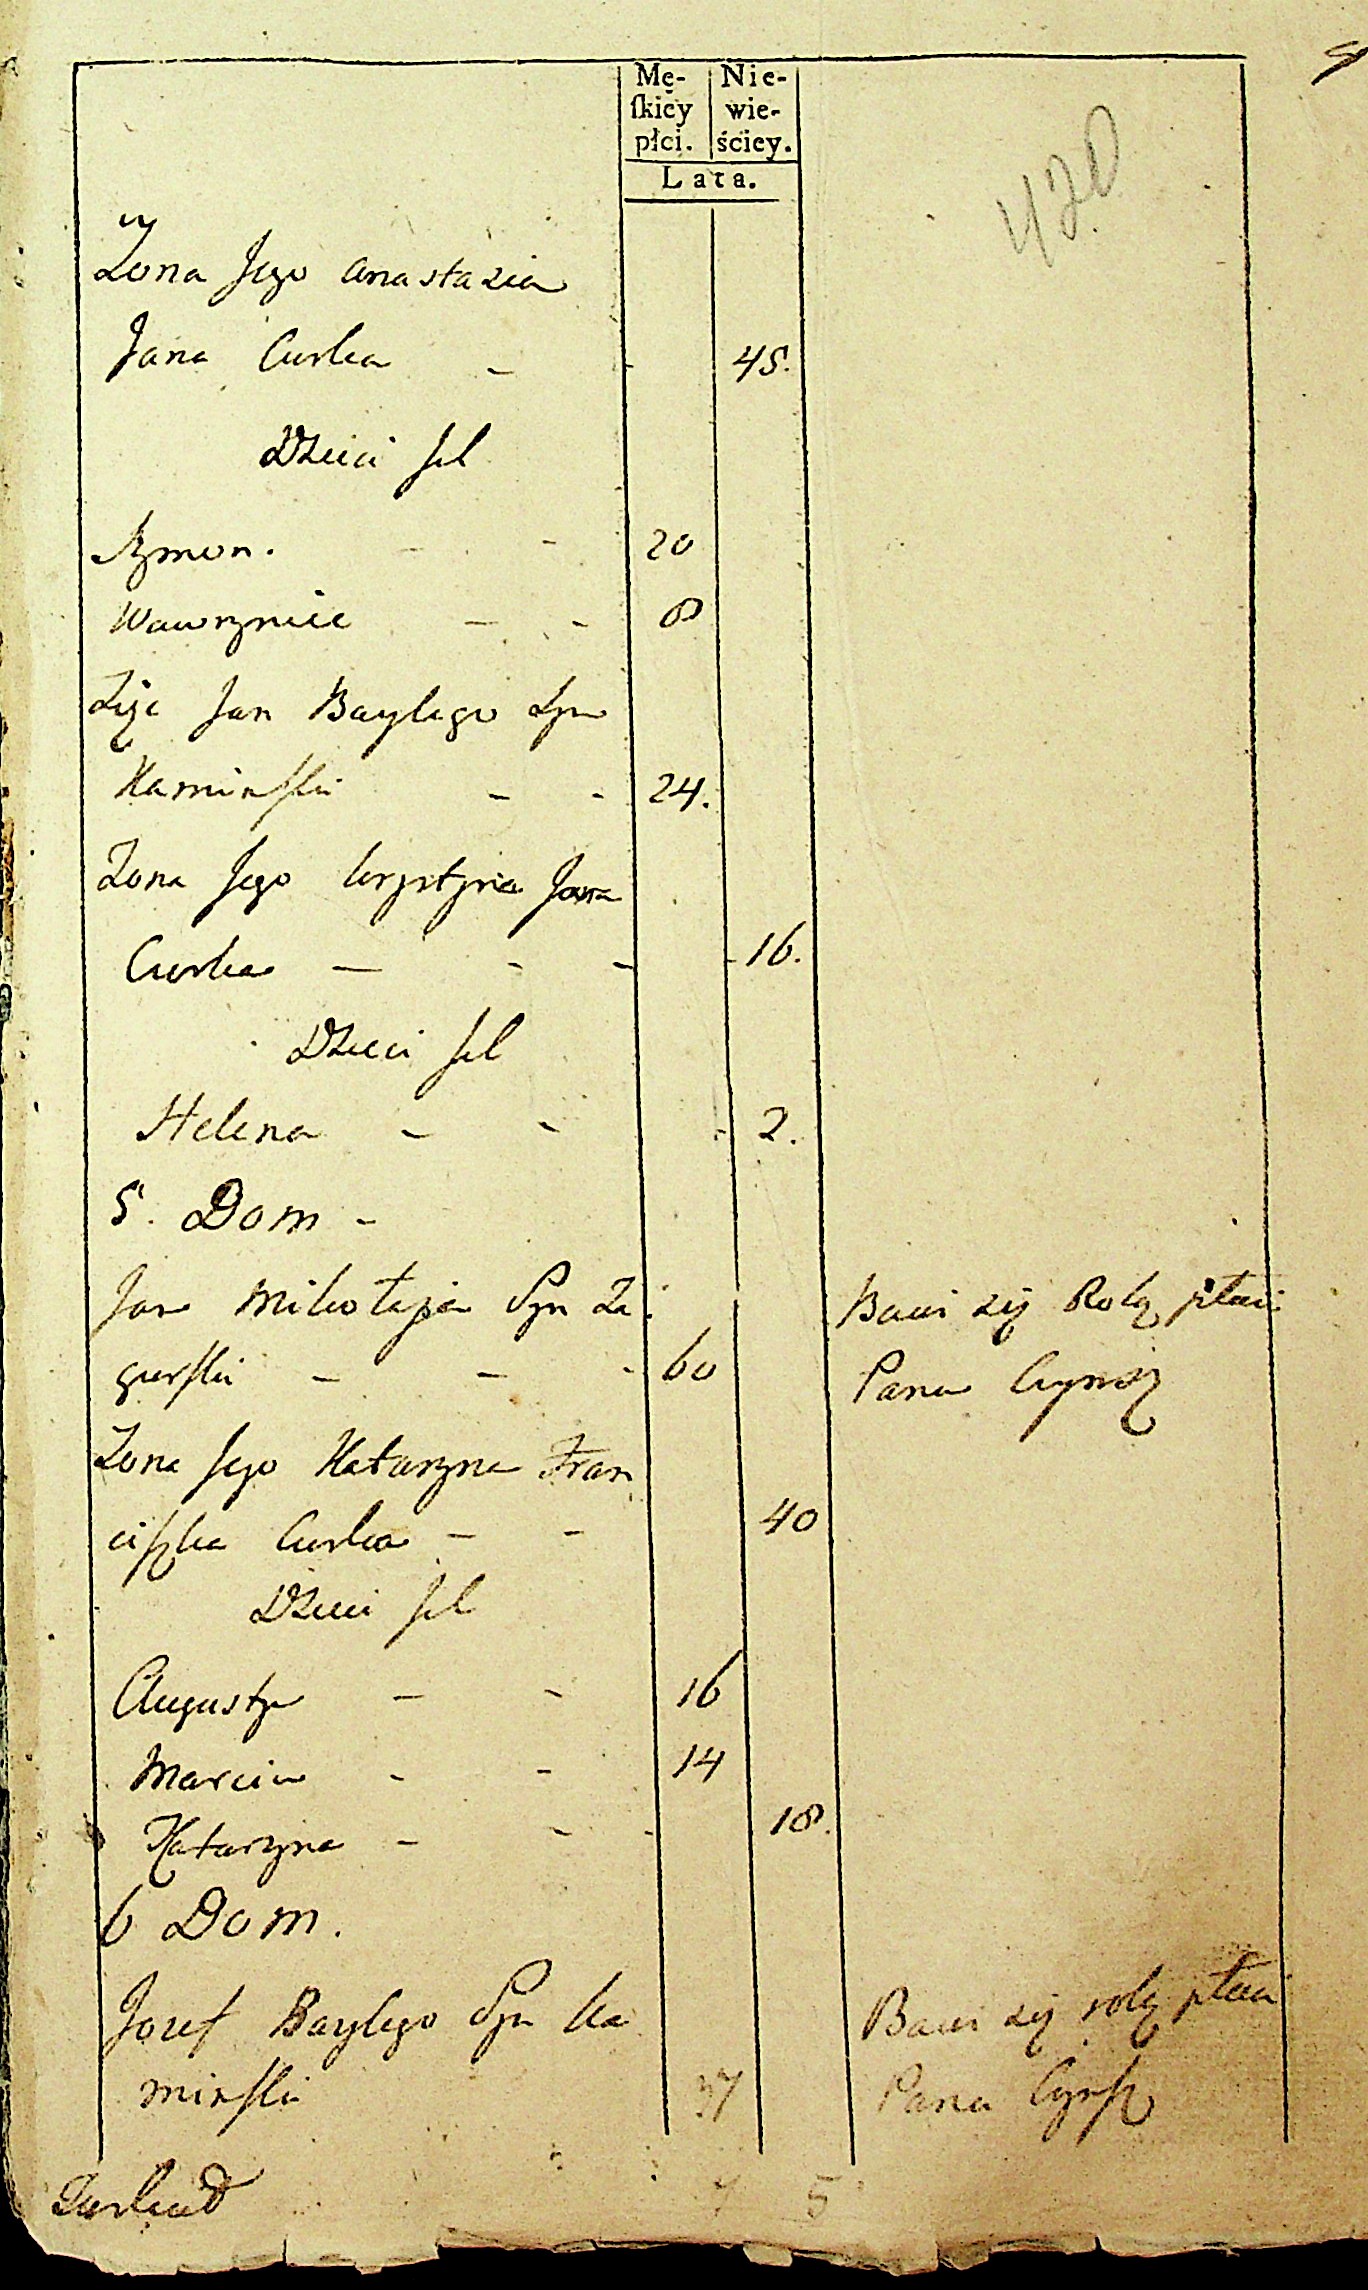 Mę-
ſkiey
płci.
Nie-
wie-
ściey.
Lata.
420
Żona Jego Anastazia
Jana Curka - - 45.
Dzieci ich
Szymon. - - 20
Wawrzyniec - - 8
Zięć Jan Bazylego Syn
Kaminſki - - 24.
Zona Jego krystyna Jana
Curka - - - 16.
Dzieci ich
Helena - - - 2.
5. Dom -
Jan Mikołaja Syn Za
gurſki - - - 60
Bawi się Rolą płaci
Panu Czynsz
Zona Jego Katarzyna Fran
ciſzka Curka - - 40
Dzieci ich
Augustyn - - 16
Marcin - - 14
Katarzyna - - - 18.
6 Dom.
Jozef Bazylego Syn Ka
minſki 37
Bawi się rolą płaci
Panu Czynſz
7 5